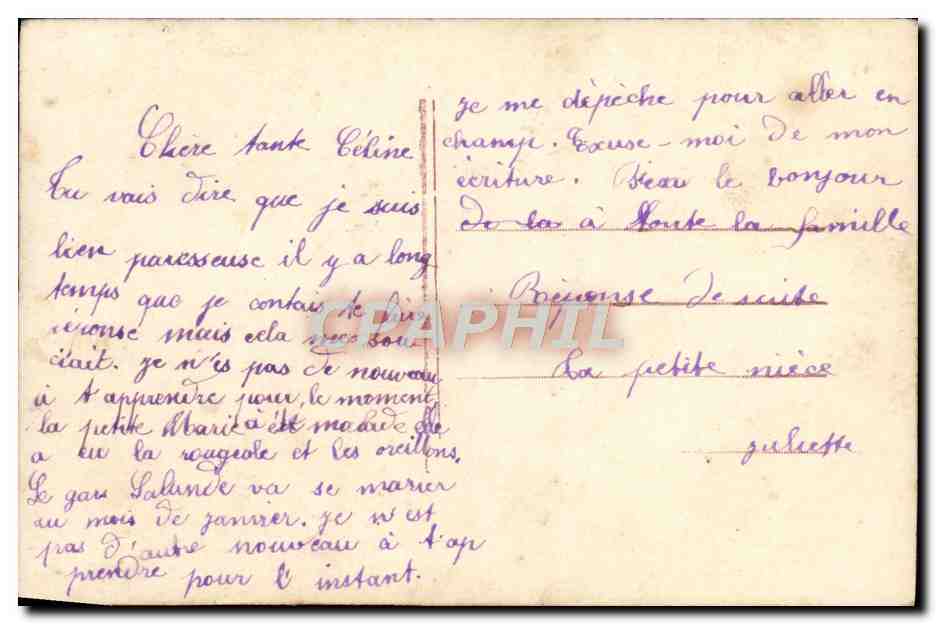 Chère tante Céline
Tu vais dire que je suis
bien paresseuse il y a long
temps que je contais te
réponse mais cela me
ciait. Je n'es pas de nouveau
à t'apprendre pour le moment
la petite Marie à été malade elle
a eu la rougeole et les oreillons.
Le gars Lalande va se marier
au mois de janvier. Je n'est
pas d'autre nouveau à t'ap
prendre pour l'instant.
Je me dépêche pour aller en
champ. Excuse-moi de mon
écriture. Bien le bonjour
de la à toute la famille
Réponse de suite
La petite nièce
Juliette
CPAPHIL